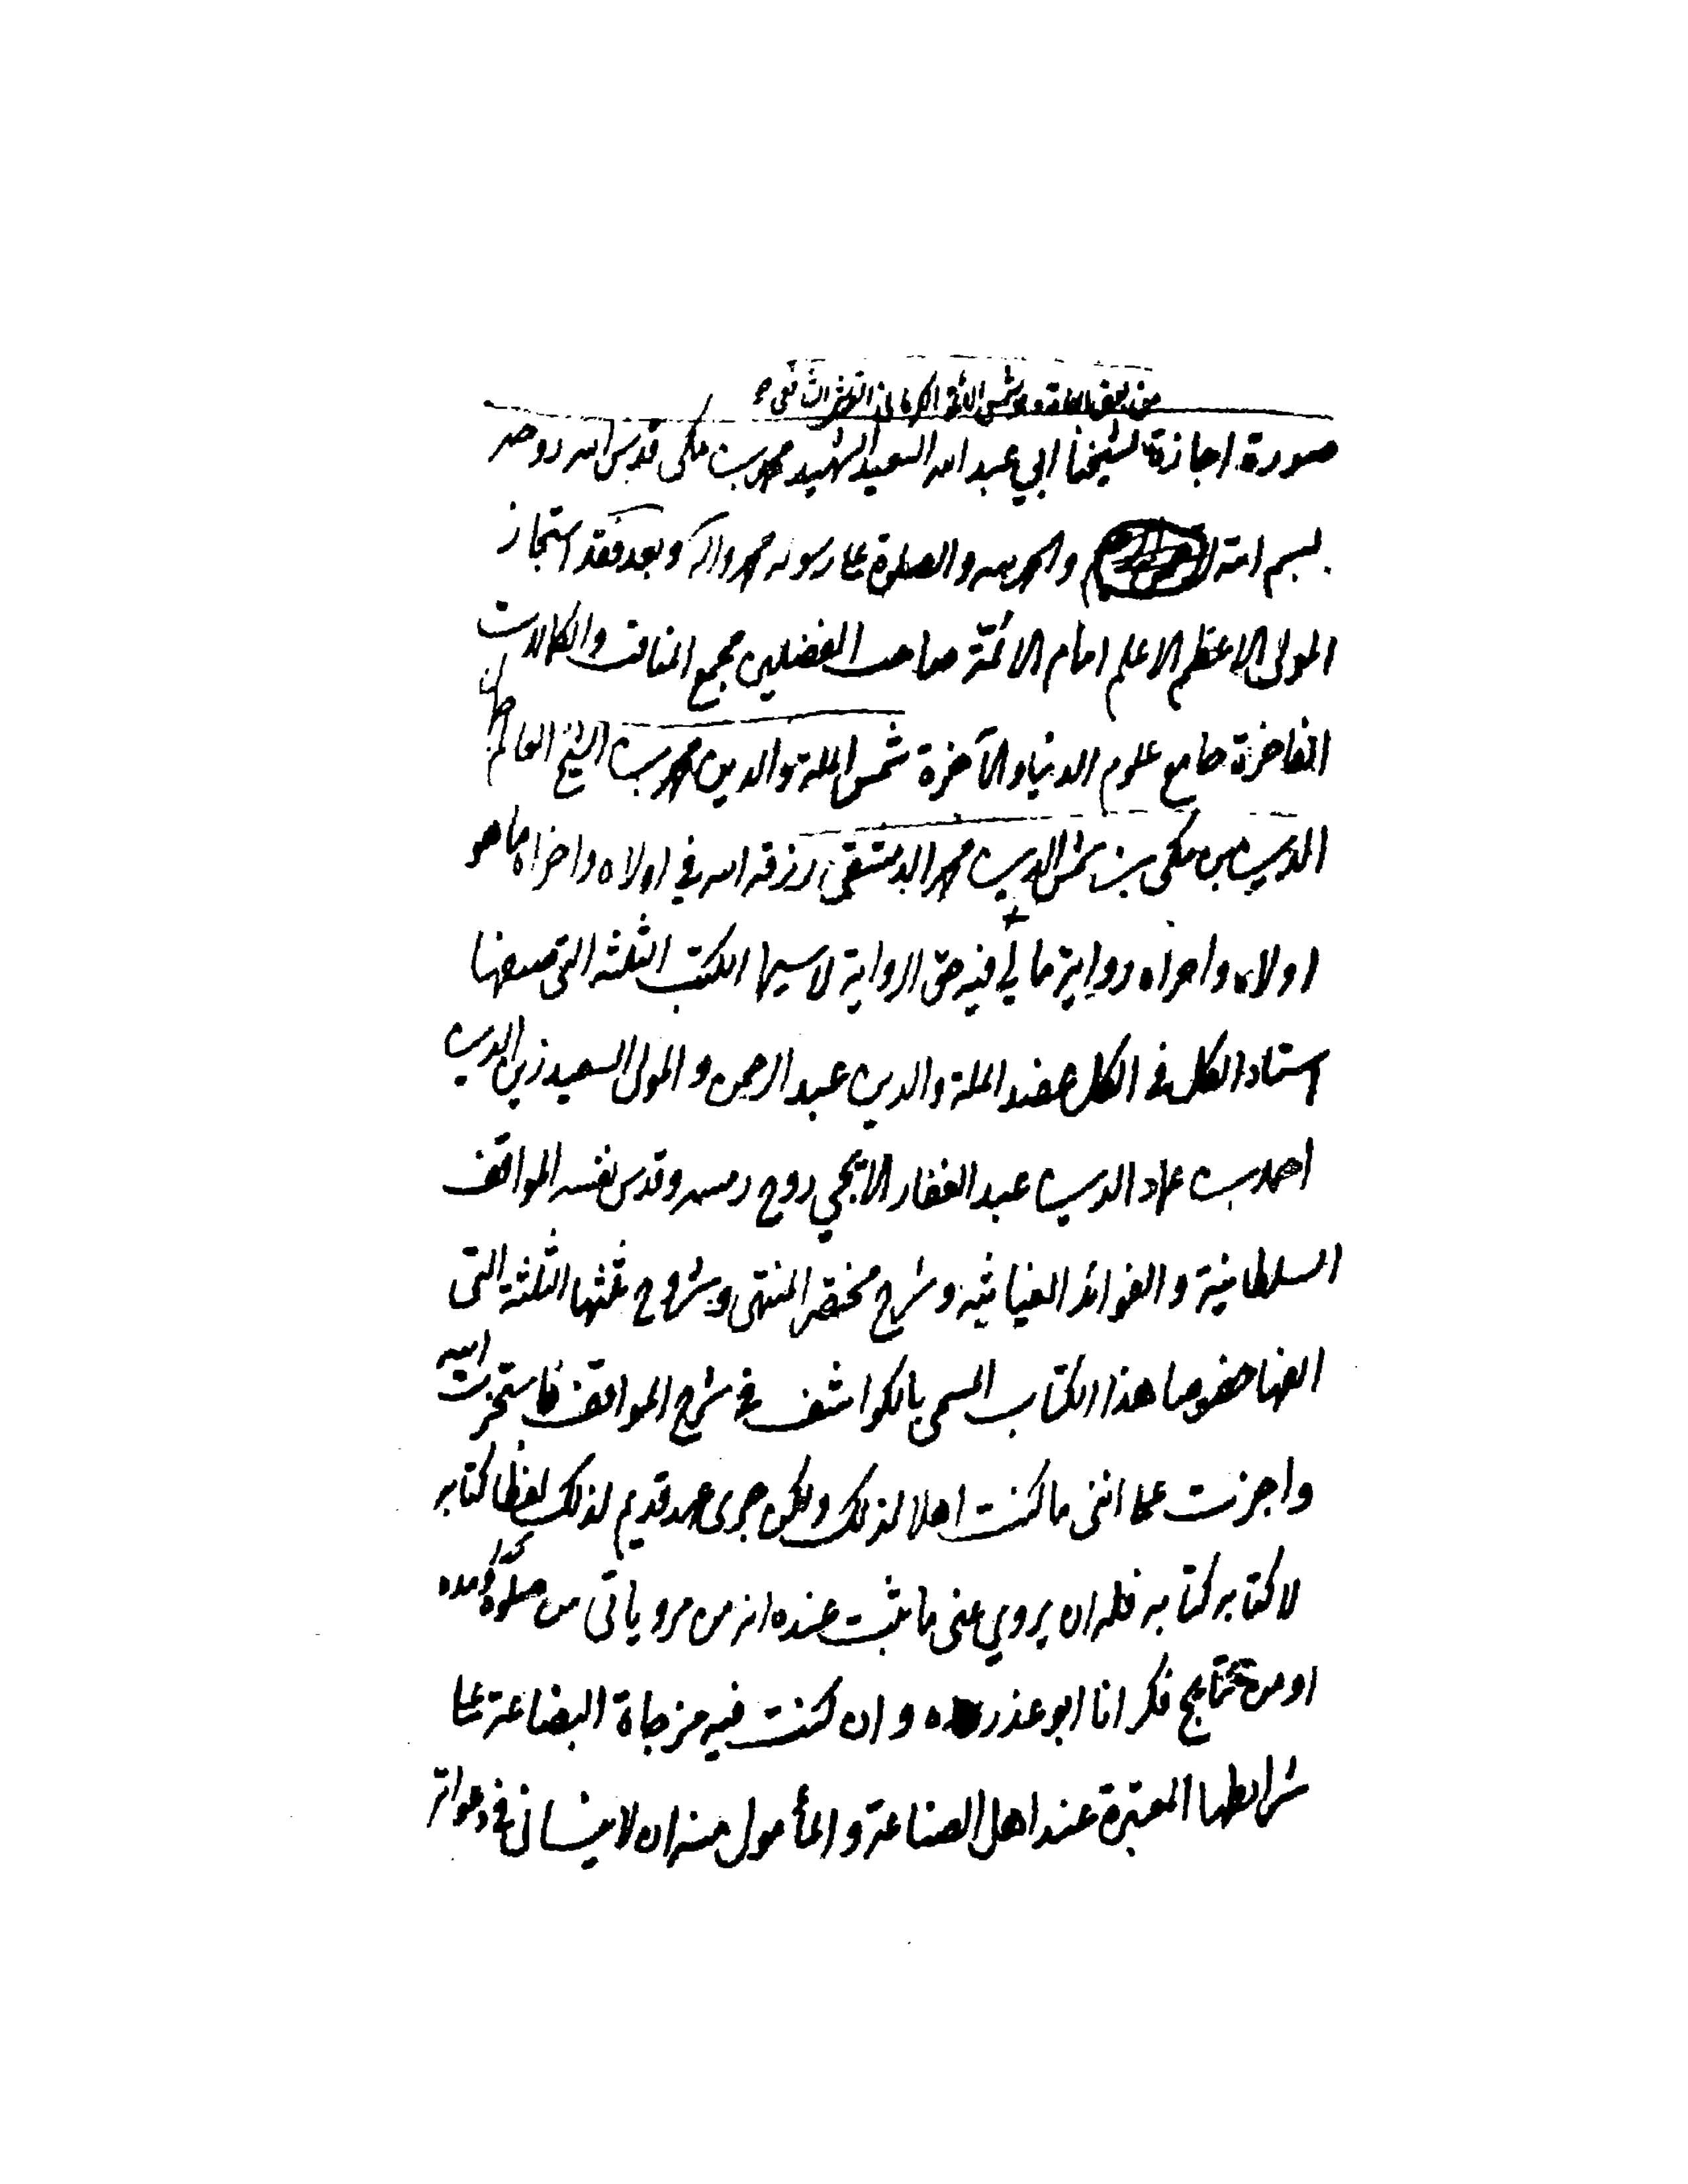 من بعض العامة وهو شمس الأئمة الكرماني القرشي الشافعي
صورة اجازة لشيخنا ابي عبد الله السعيد الشهيد محمد بن مكي قدس الله روحه
بسم الله والحمد لله والصلوة على رسوله محمد واله وبعد فقد استجاز
المولى الاعظم الاعلم امام الائمة صاحب الفضلين مجمع المناقب والكمالات
الفاخرة جامع علوم الدنيا والآخرة شمس الملة والدين محمد بن الشيخ العالم جمال
الدين بن مكي بن شمس الدين محمد الدمشقي رزقه الله في اولاه واخراه ما هو
اولاه واحراه رواية ما لي فيه حق الرواية لا سيما الكتب الثلثه التي صنفها
استاد الكل في الكل عضد الملة والدين عبد الرحمن و المولى السعيد زين الدين
احمد بن عماد الدين عبد الغفار الايجي روح رمسه وقدس نفسه المواقف
السلطانية و الفوائد الغياثيه و شرح مختصر المنتهى و شروح ثلثتها الثلثة التي
الفها خصوصا هذا الكتاب المسمى بالكواشف في شرح المواقف فاستخرت الله
واجزت على انني ما كنت اهلا لذلك ولكن جرى عهد قديم لذلك لفظا كتابه
لا كتابه كتابه فله ان يروي عني ما يثبت عنده انه من مروياتي من
او من نتايج فكر انا ابو عذره و ان كنت فيه مزجاة البضاعة على
شرايطها المعتبرة عند اهل الصناعة و المأمول منه ان لا ينساني في دعواته